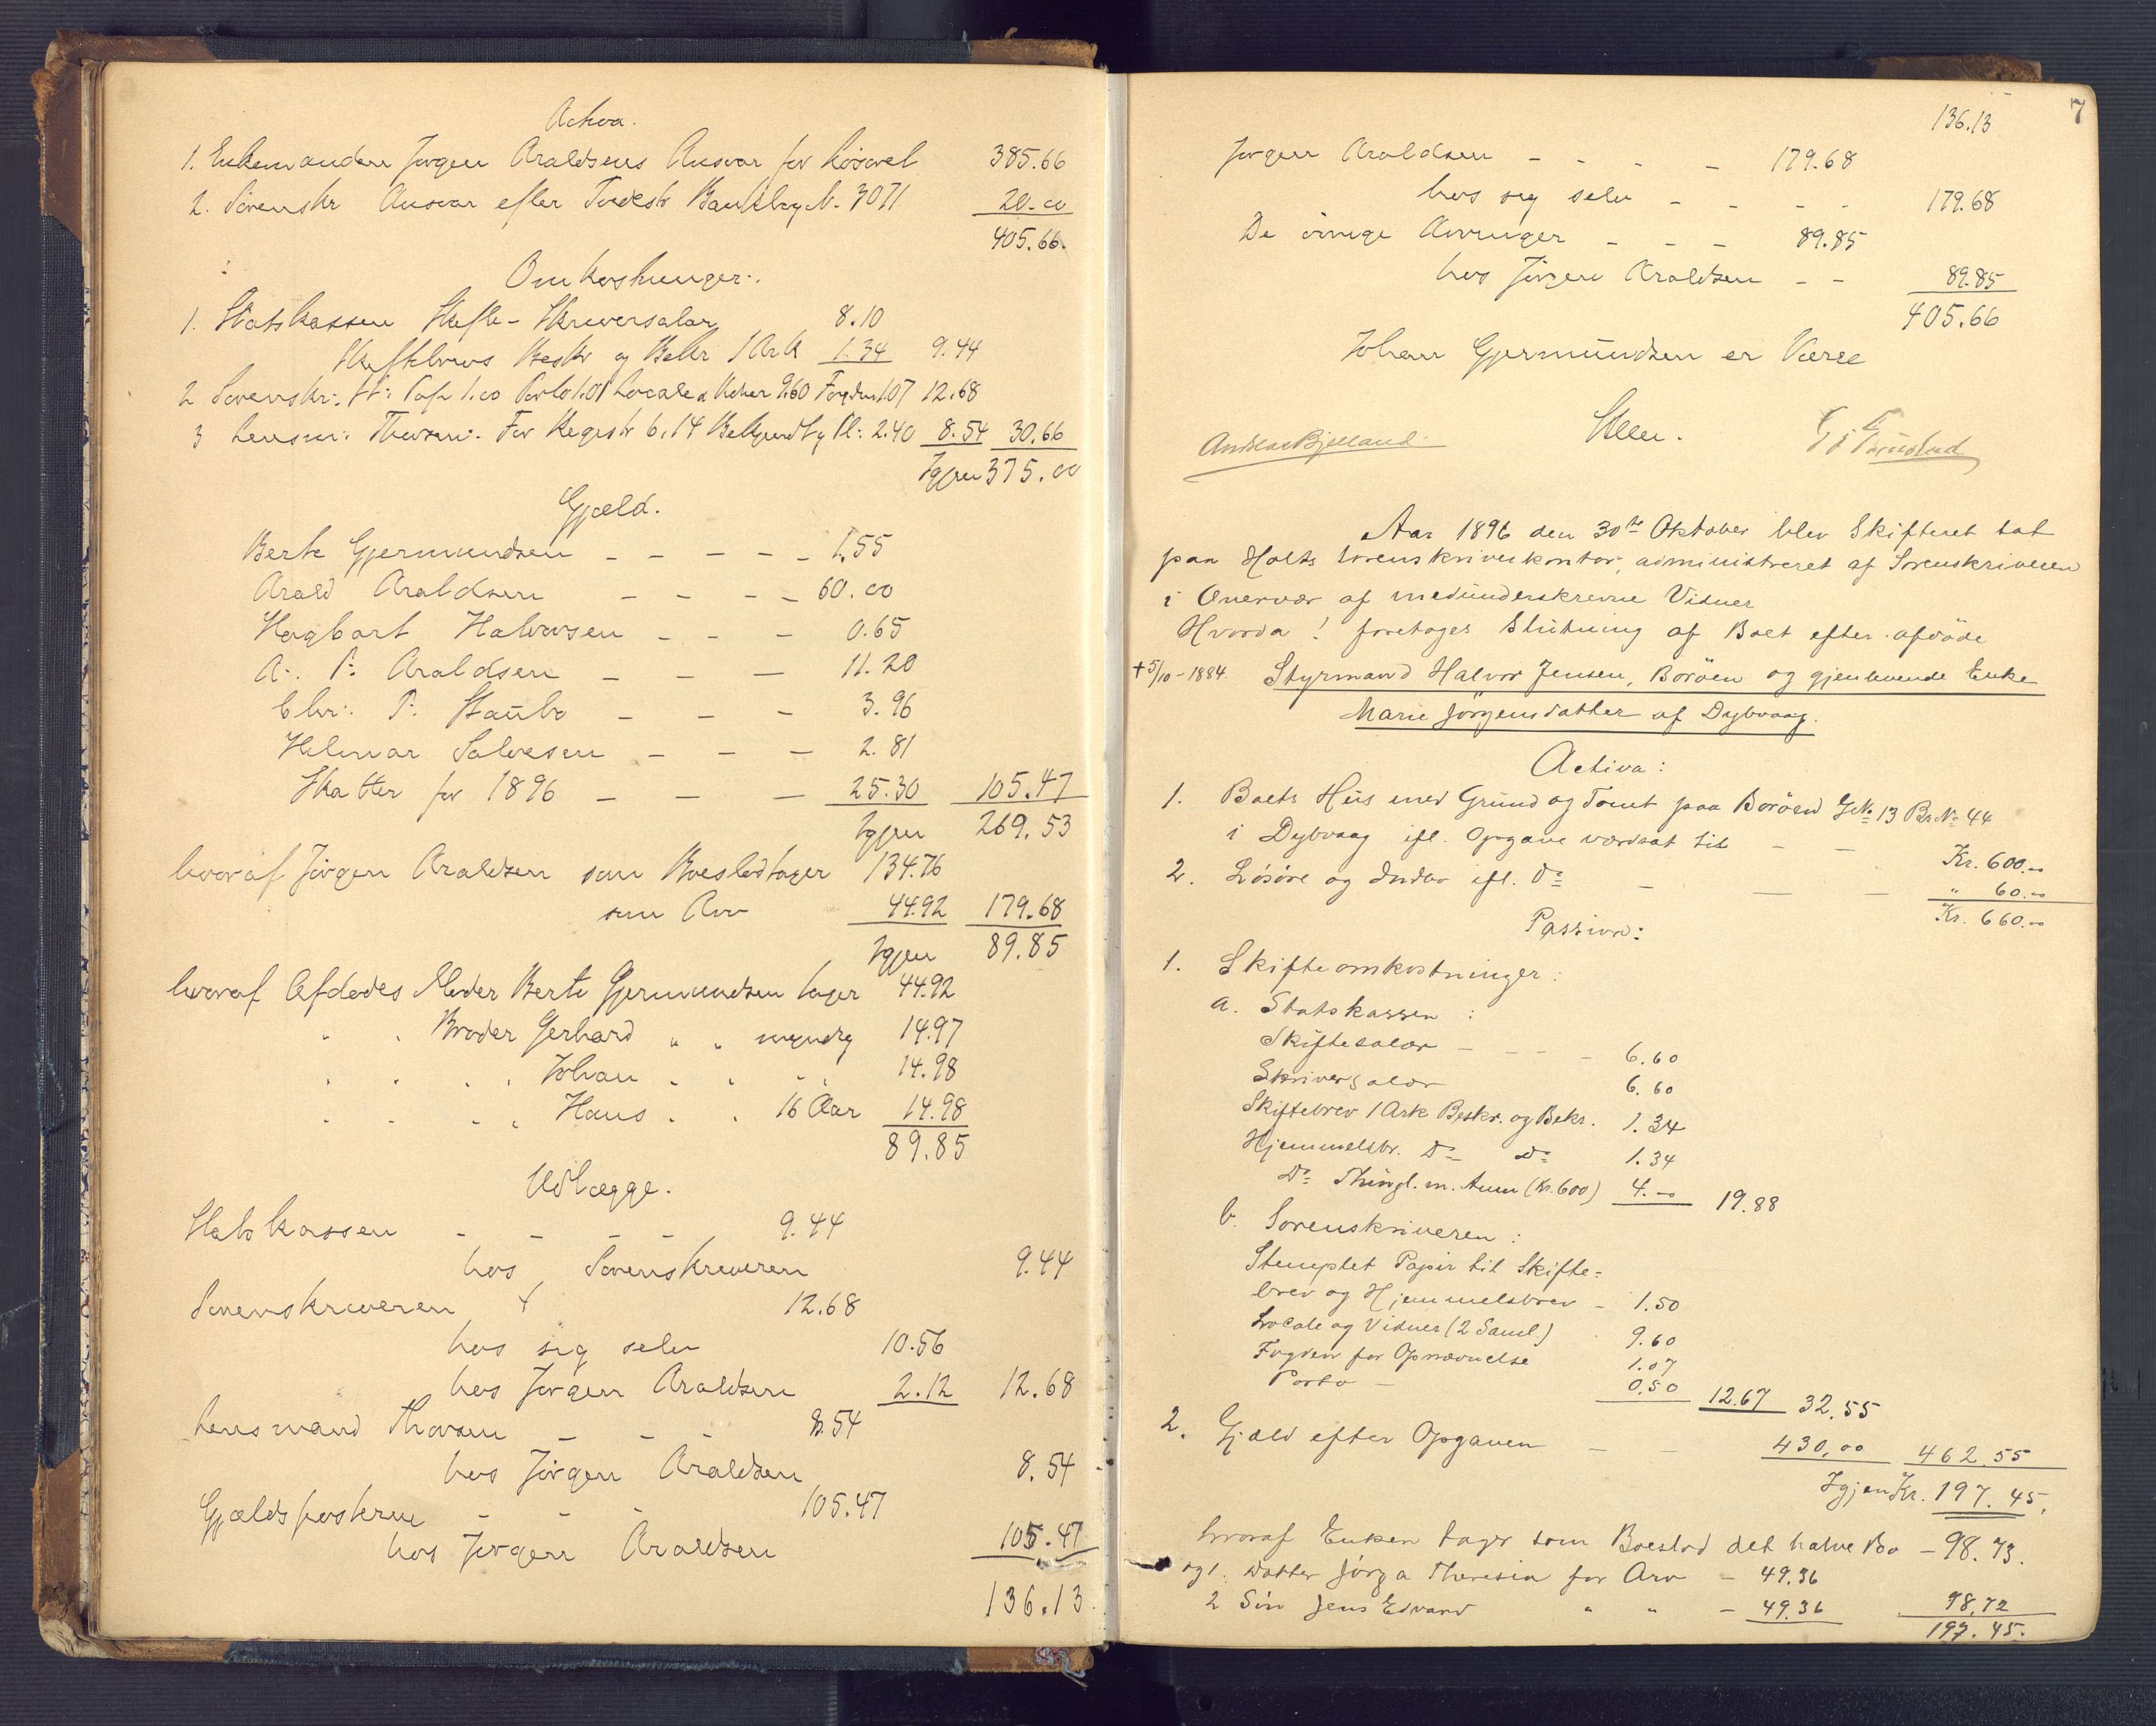 Activa.
1. Enkemanden Jørgen Araldsens Ansvar for Løsøret 385.66
2. Sorenskr Ansvar efter Tvedestr Bankbog N. 3071 20.00
405.66.
Omkostninger.
1. Statskassen Skifte- Skriversalær 8.10
Skiftebrevs Beskr og Bekr 1 Ark 1.34 9.44
2 Sorenskr: St: Pap 1.00 Porto 1.01 Locale & Vidner 9.60 Fogden 1.07 12.68
3 Lensm: Thorsen: For Registr 6.14 Bekjendtg Pl: 2.40 8.54 30.66
Igjen 375.00
Gjæld.
Berte Gjermundsen – – – – – 1.55
Arald Araldsen – – – – 60.00
Hagbart Halvorsen – – – 0.65
A. P. Araldsen – – – 11.20
Chr: P. Staubo – – – 3.96
Hilmar Salvesen – – – 2.81
Skatter for 1896 – – – 25.30 105.47
Igjen 269.53
hvoraf Jørgen Araldsen som Boeslodtager 134.76
som Arv 44.92 179.68
Igjen 89.85
hvoraf Afdødes Moder Berte Gjermundsen tager 44.92
" " Broder Gerhard " " myndig 14.97
" " " " Johan " " " " 14.98
" " " " Hans " " 16 Aar 14.98
89.85
Udlægge.
Statskassen – – – – 9.44
hos Sorenskriveren 9.44
Sorenskriveren 12.68
hos sig selv 10.56
hos Jørgen Araldsen 2.12 12.68
Lensmand Thorsen – – – 8.54
hos Jørgen Araldsen 8.54
Gjældsposterne – – – 105.47
hos Jørgen Araldsen 105.47
136.13
7
136.13
Jørgen Araldsen – – – – 179.68
hos sig selv – – – – 179.68
De øvrige Arvinger – – – 89.85
hos Jørgen Araldsen – – 89.85
405.66
Johan Gjermundsen er Værge
Andreas Bjelland.
Aar 1896 den 30te Oktober blev Skifteret sat
paa Holts Sorenskriverkontor, administreret af Sorenskriveren
i Overvær af medunderskrevne Vidner
Hvorda! foretoges Slutning af Boet efter afdøde
+ 5/10-1884. Styrmand Halvor Jensen, Borøen og gjenlevende Enke
Marie Jørgensdatter af Dybvaag.
Activa:
1. Boets Hus med Grund og Tomt paa Borøen GNo 13 Br.No 44
i Dybvaag ifl. Opgave værdsat til – – Kr. 600.00
2. Løsøre og Indbo ifl. Do – – – " 60.00
Kr. 660.00
Passiva:
1. Skifteomkostninger:
a. Statskassen :
Skiftesalær – – – – 6.60
Skriversalær 6.60
Skiftebrev 1 Ark Beskr. og Bekr. 1.34
Hjemmelsbr. Do Do 1.34
Do Thingl. m. Anm (Kr. 600) 4.00 19.88
b. Sorenskriveren :
Stemplet Papir til Skifte=
brev og Hjemmelsbrev – 1.50
Locale og Vidner (2 Saml.) 9.60
Fogden for Opnævnelse 1.07
Porto – 0.50 12.67 32.55
2. Gjæld efter Opgaven – – 430,00 462.55
Igjen Kr. 197.45.
hvoraf Enken tager som Boeslod det halve Bo – 98.73.
og 1. Datter Jørga Theresia for Arv – 49.36
2 Søn Jens Edvard " " – 49.36 98,72
197.45.